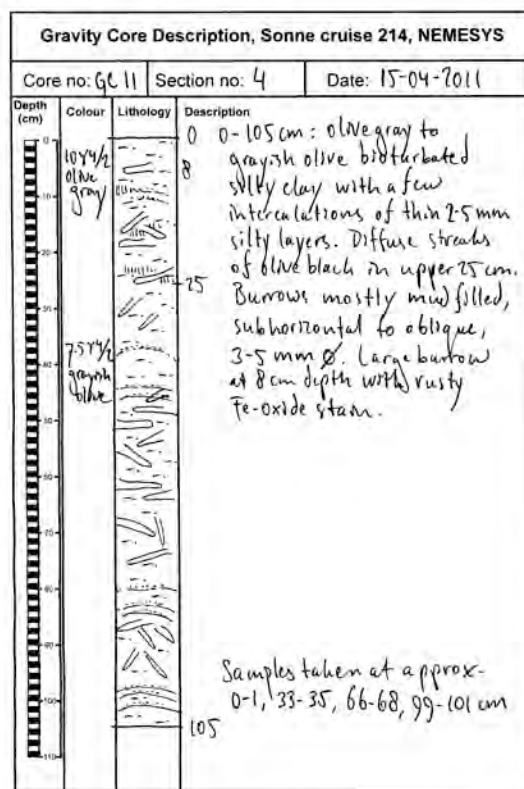 Gravity Core Description, Sonne cruise 214, NEMESYS
Core no: GC 11 Section no: 4 Date: 15-04-2011
Depth (cm) Colour Lithology Description
0
10
20
30
40
50
60
70
80
90
100
110
10Y4/2
olive
gray
7.5Y4/2
grayish
olive
0
8
25
105
0-105 cm: olive gray to
grayish olive bioturbated
silty clay with a few
intercalations of thin 2-5 mm
silty layers. Diffuse streaks
of olive black in upper 25 cm.
Burrows mostly mud filled,
subhorizontal to oblique,
3-5 mm Ø. Large burrow
at 8 cm depth with rusty
Fe-oxide stain.
Samples taken at approx-
0-1, 33-35, 66-68, 99-101 cm